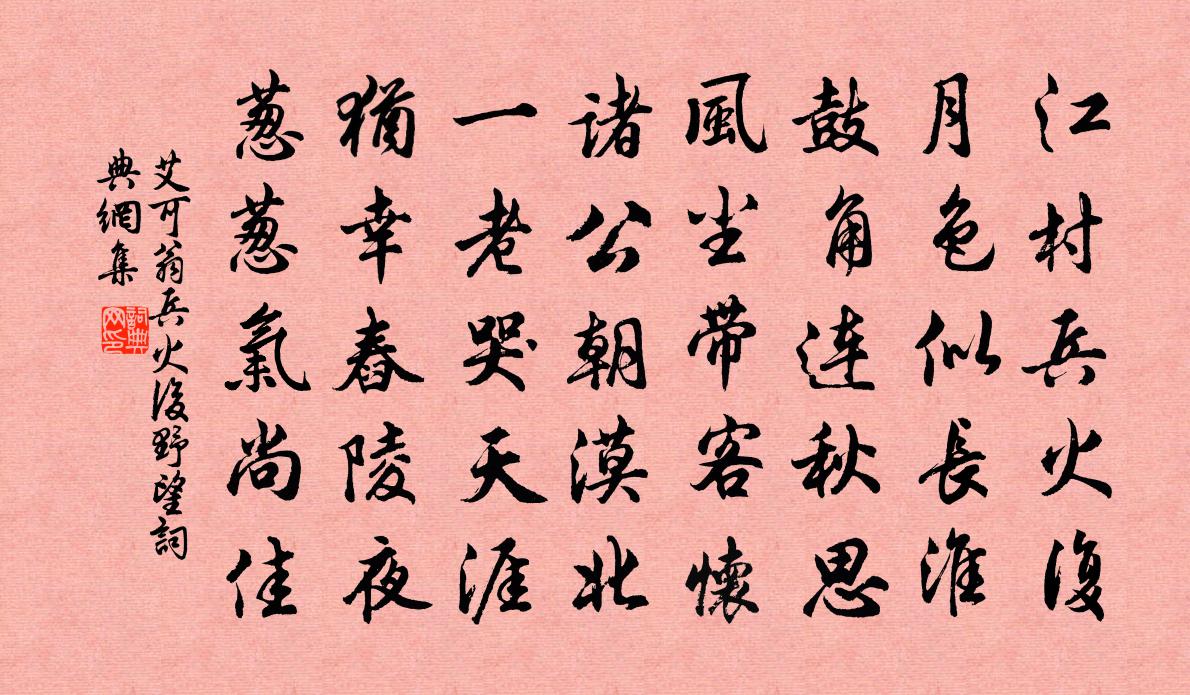 江村兵火後
月色似長淮
鼓角连秋思
風尘带客懷
诸公朝漠北
一老哭天涯
猶幸舂陵夜
葱葱氣尚佳
艾可翁兵火後野望詞
典網集
詞典网印